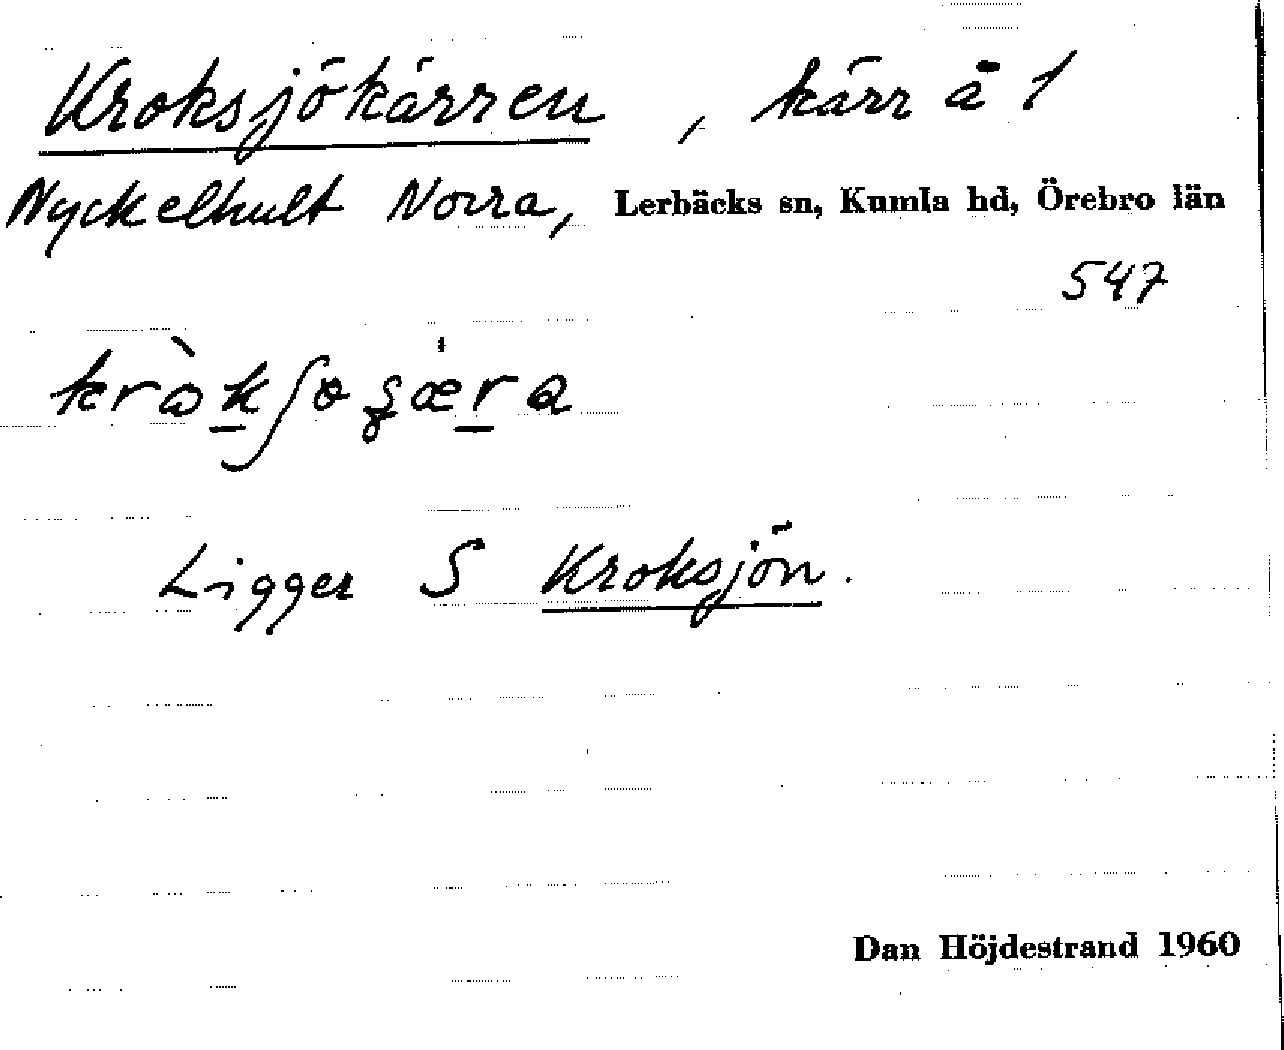 Kroksjökärren, kärr å 1
Nyckelhult Norra, Lerbäcks sn, Kumla hd, Örebro län
547
Ligger S Kroksjön.
Dan Höjdestrand 1960